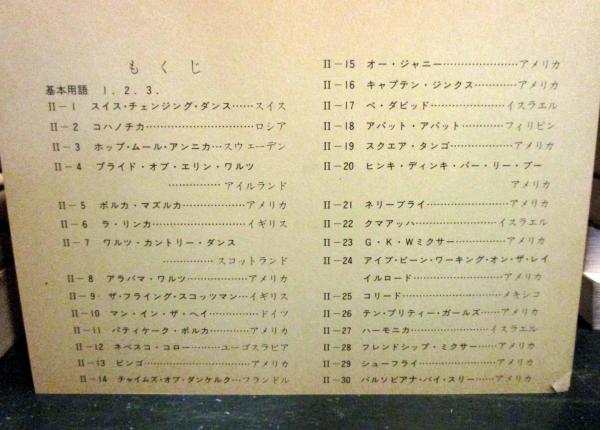 もくじ
基本用語 1.2.3.
II－1 スイス・チェンジング・ダンス……スイス
II－2 コハノチカ……………………ロシア
II－3 ホップ・ムール・アンニカ…スウェーデン
II－4 ブライド・オブ・エリン・ワルツ
……………アイルランド
II－5 ポルカ・マズルカ……………アメリカ
II－6 ラ・リンカ……………………イギリス
II－7 ワルツ・カントリー・ダンス
……………スコットランド
II－8 アラバマ・ワルツ……………アメリカ
II－9 ザ・フライング・スコッツマン…イギリス
II－10 マン・イン・ザ・ヘイ…………ドイツ
II－11 パティケーク・ポルカ…………アメリカ
II－12 ネベスコ・コロー……ユーゴスラビア
II－13 ビンゴ…………………………アメリカ
II－14 チャイムズ・オブ・ダンケルク…フランドル
II－15 オー・ジャニー………………アメリカ
II－16 キャプテン・ジンクス…………アメリカ
II－17 ベ・ダビッド………………イスラエル
II－18 アパット・アパット…………フィリピン
II－19 スクエア・タンゴ……………アメリカ
II－20 ヒンキ・ディンキ・パー・リー・ブー
アメリカ
II－21 ネリーブライ…………………アメリカ
II－22 クマアッハ…………………イスラエル
II－23 G・K・Wミクサー……………アメリカ
II－24 アイブ・ビーン・ワーキング・オン・ザ・レイ
イルロード……………………アメリカ
II－25 コリード………………………メキシコ
II－26 テン・プリティー・ガールズ……アメリカ
II－27 ハーモニカ…………………イスラエル
II－28 フレンドシップ・ミクサー……アメリカ
II－29 シューフライ…………………アメリカ
II－30 バルソビアナ・バイ・スリー……アメリカ